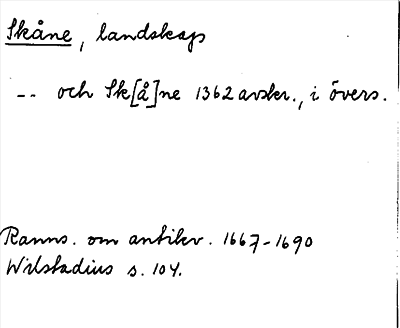 Skåne, landskap
-- och Sk[å]ne 1362 avskr., i övers.
Ranns. om antikv. 1667-1690
Wilstadius s. 104.